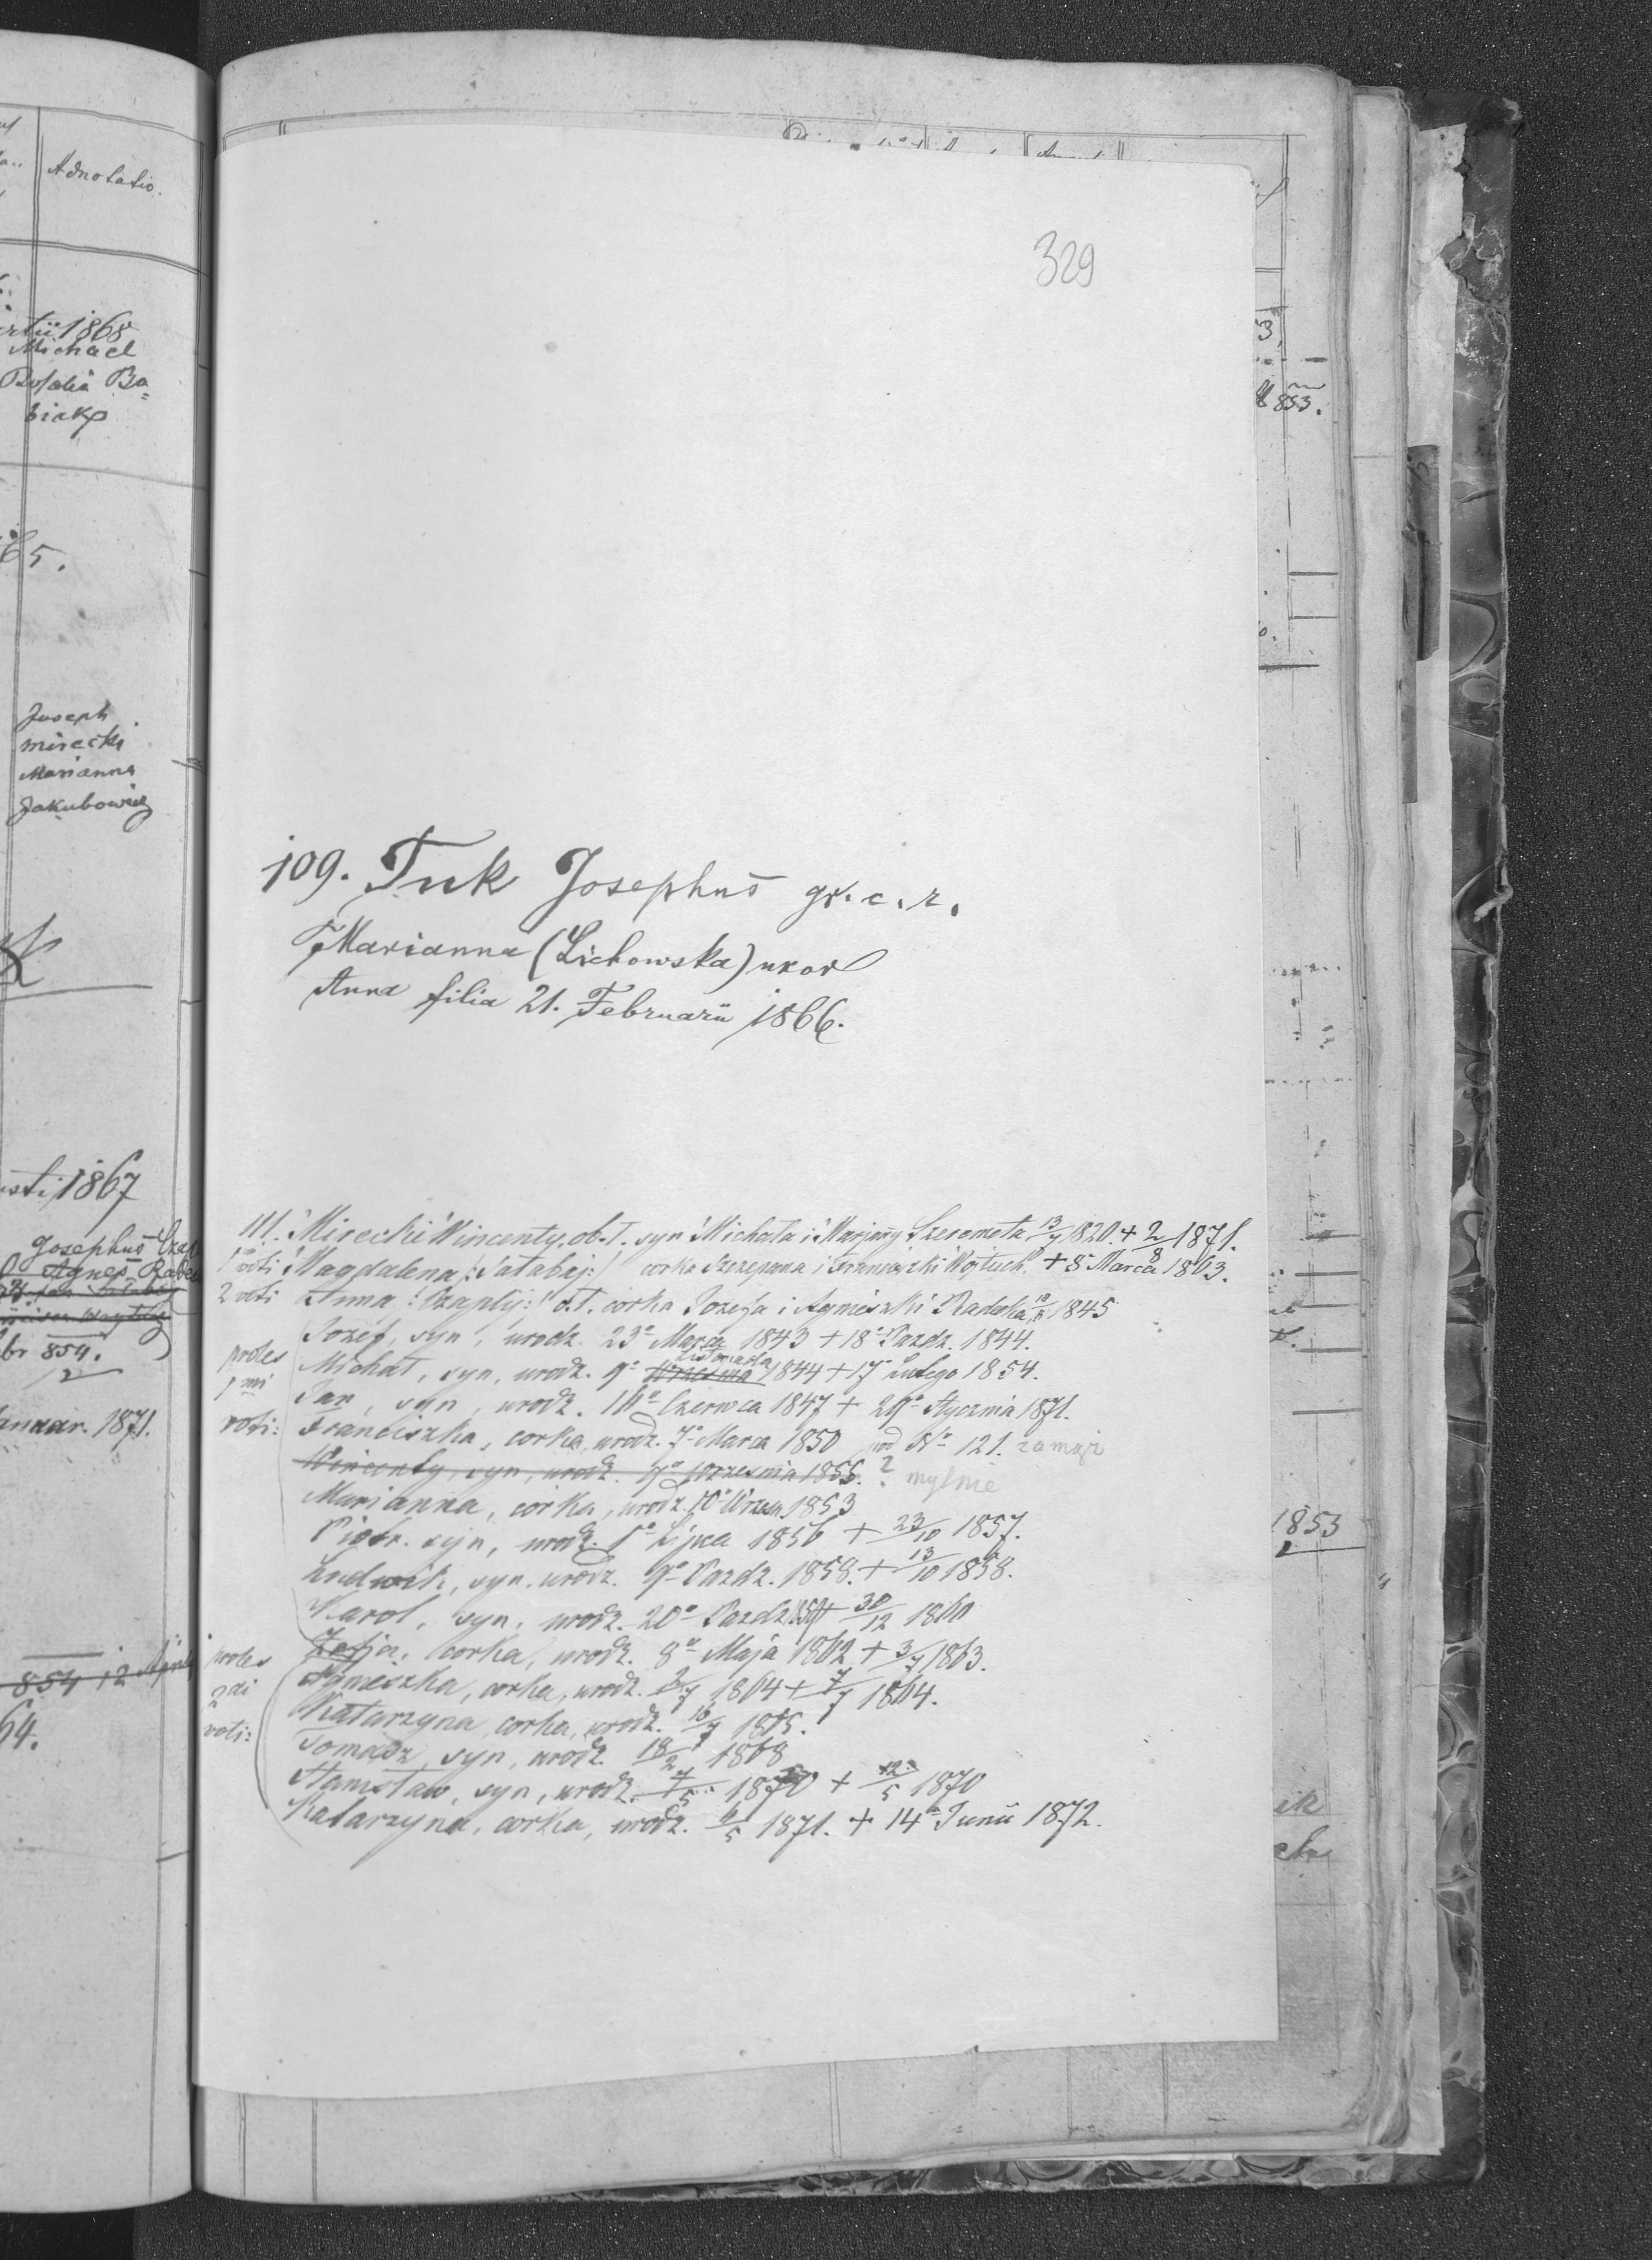 Adnotatio.
1868
Michael
Rosalia Ba=
biak
65.
Joseph
Mirecki
Marianna
Jakubowicz
1867
Josephus
Agnes
854.
Januar. 1871.
854 12 Aprilis
64.
329
853.
109. Tuk Josephus gr. c. r.
Marianna (Lichowska) uxor
Anna filia 21. Februarii 1866.
111. Mirecki Wincenty, ob. ł. syn Michała i Marjany Szeremeta 13/7 1820. + 2/8 1871.
1mo voti Magdalena /: Sałabaj :/ corka Szczepana i Franciszki Wojtuch. + 8 Marca 1863.
2 voti Anna /: Czaplij :/ o. ł. corka Jozefa i Agnieszki 1845
Jozéf, syn, urodz. 23o Marca 1843 + 18o Pazdz. 1844.
proles
1mi
voti:
Michał, syn, urodz. 9o Września Listopada 1844 + 17o Lutego 1854.
Jan, syn, urodz. Czerwca 1847 + 29o Stycznia 1871.
Franciszka, corka, urodz. 7o Marca 1850 pod No 121. zamęż
Wincenty, syn, urodz. Wrzesnia 1855. ? mylnie
Marianna, córka, urodz. 10o Wrzesn. 1853
Piotr, syn, urodz. 1o Lipca 1856 + 23/10 1857.
Ludwik, syn, urodz. 9o Pazdz. 1858. + 13/10 1858.
Karol, syn, urodz. 20o Pazdz. 1859 + 30/12 1860
proles
2di
voti:
Zofja, corka, urodz. 8o Maja 1862 + 3/7 1863.
Agnieszka, corka, urodz. 2/7 1864 + 7/7 1864.
Katarzyna, corka, urodz. 16/7 1865.
Tomasz, syn, urodz. 18/2 1868
Stanisław, syn, urodz. 7/5 1870 + 12/5 1870
Katarzyna, corka, urodz. 1871. + 14o Junii 1872.
1853